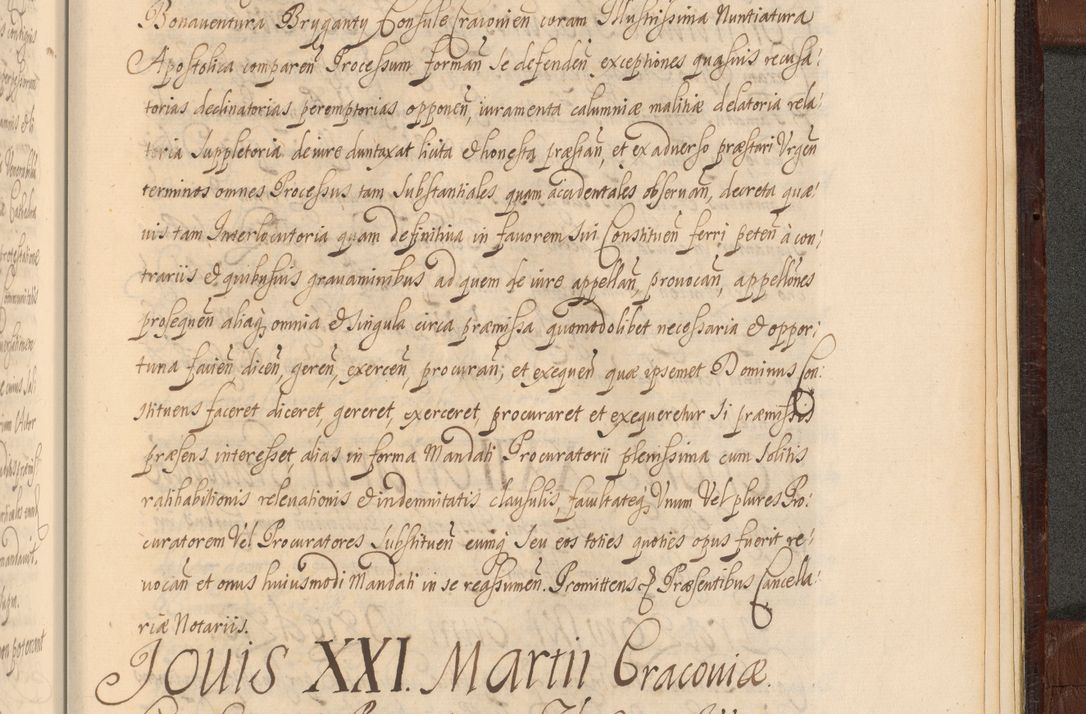 Bonaventura Bryganty Consule Cracovien̄ coram Illustrissima Nuntiatura
Apostolica comparen̄ Processum forman̄ se defenden̄ exceptiones quasuis recusa:
torias declinatorias peremptorias opponen̄, iuramenta calumniæ malitiæ delatoria rela:
toria Suppletoria de iure duntaxat licita & honesta præstan̄, et ex adverso præstari Urgen̄
terminos omnes Processus tam Substantiales quam accidentales observan̄, decreta quæ:
vis tam Interlocutoria quam definitiva in favorem sui Constituen̄ ferri peten̄ à con:
trariis & quibusuis gravaminibus ad quem de iure appellan̄, provocan̄, appellōnes
prosequen̄ aliaq; omnia & singula circa præmissa quomodolibet necessaria & oppor:
tuna facien̄ dicen̄, geren̄, exercen̄, procuran̄; et exequen̄ quæ ipsemet Dominus Con:
stituens faceret diceret, gereret, exerceret, procuraret et exequeretur si præmissis
præsens interesset, alias in forma Mandati Procuratorii plenissima cum solitis
ratihabitionis relevationis & indemnitatis clausulis, facultateq; Unum Vel plures Pro:
curatorem Vel Procuratores Substituen̄ eumq; seu eos toties quoties opus fuerit re:
vocan̄ et onus huiusmodi Mandati in se reassumen̄. Promittens & Præsentibus Cancella:
riæ Notariis.
Jovis XXI. Martii Cracoviæ.